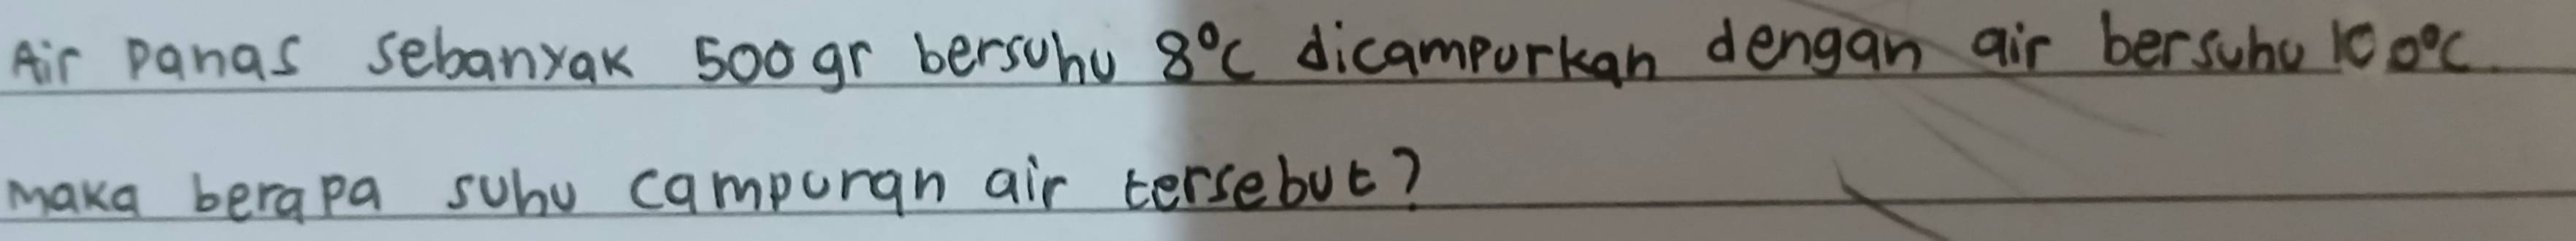 Air panas sebanyak 500 gr bersuhu 8°C dicampurkan dengan air bersuhu 100°C.
maka berapa suhu campuran air tersebut?